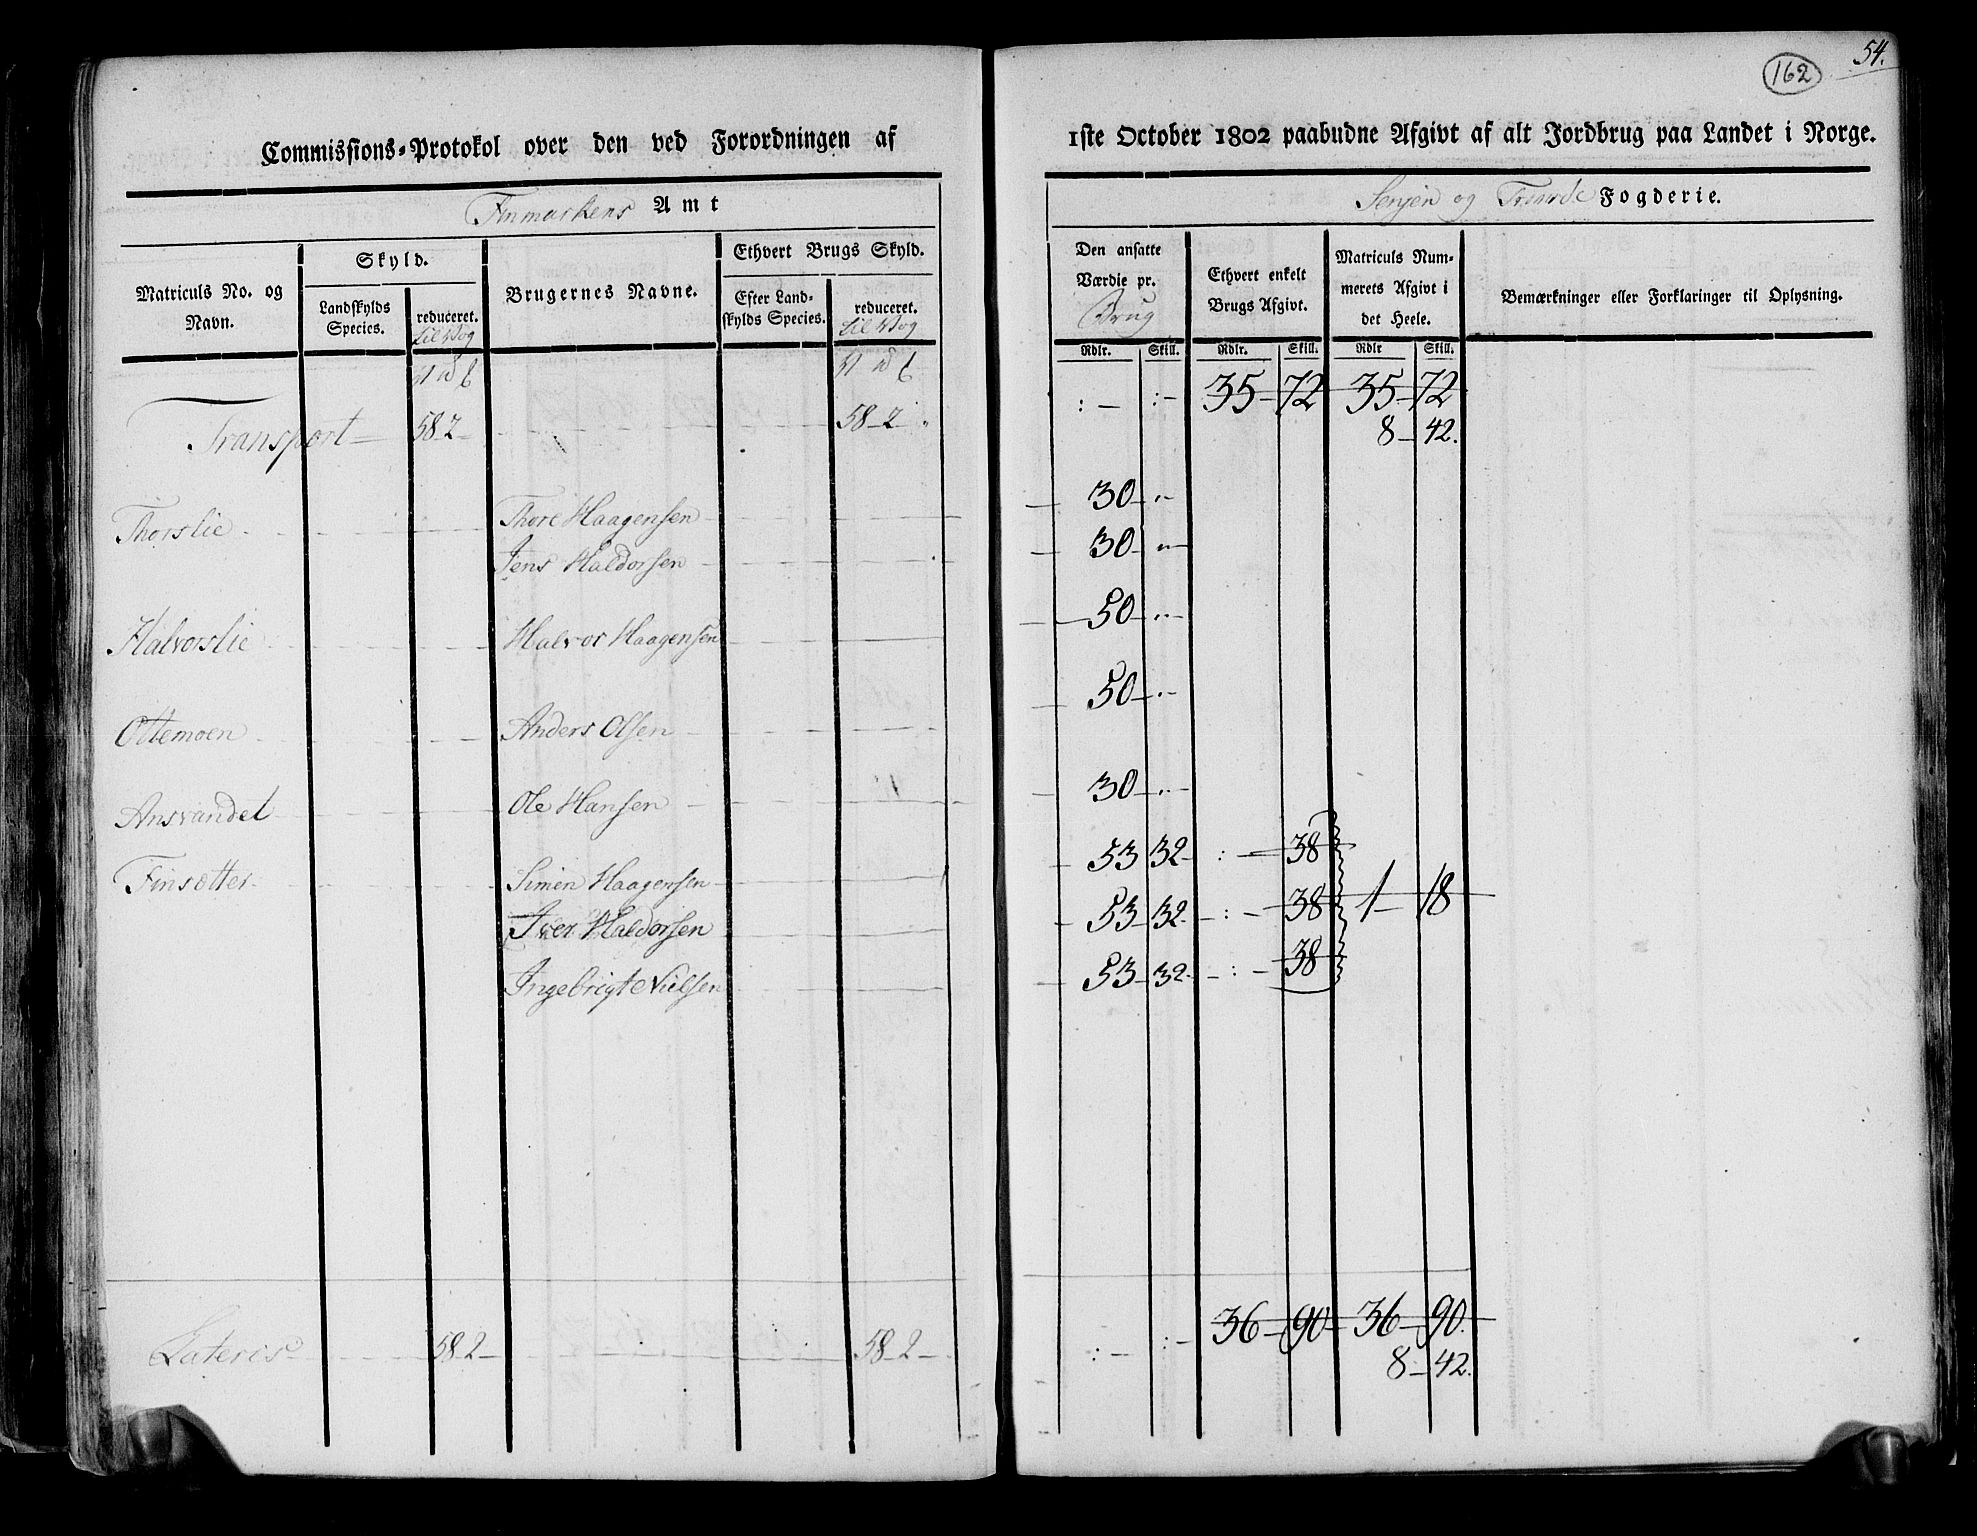 162
54.
Commissions-Protokol over den ved Forordningen af 1ste October 1802 paabudne Afgivt af alt Jordbrug paa Landet i Norge.
Finmarkens Amt
Senjen og Fogderie.
Matriculs No. og Navn.
Skyld.
Landskylds Species.
reduceret. til Wog
Brugernes Navne.
Ethvert Brugs Skyld.
Efter Landskylds Species.
reduceret. til Wog
Den ansatte Værdie pr. Brug
Ethvert enkelt Brugs Afgivt.
Matriculs Nummerets Afgivt i det Heele.
Bemærkninger eller Forklaringer til Oplysning.
Rdlr. Skill. Rdlr. Skill. Rdlr Skill.
Transport 58 2 58 2 35 72 35 72
8 42.
Thorslie Thore Haagensen 30
Jens Haldorsen 30
Halvorslie Halvor Haagensen 50
Ottemoen Anders Olsen 50
Ansvandet Ole Hansen 30
Finsætter Simen Haagensen 53 32 38
Iver Haldorsen 53 32 38 1 18
Ingebrigt Nielsen 53 32 38
Lateris 58 2 58 2 36 90 36 90.
8 42.